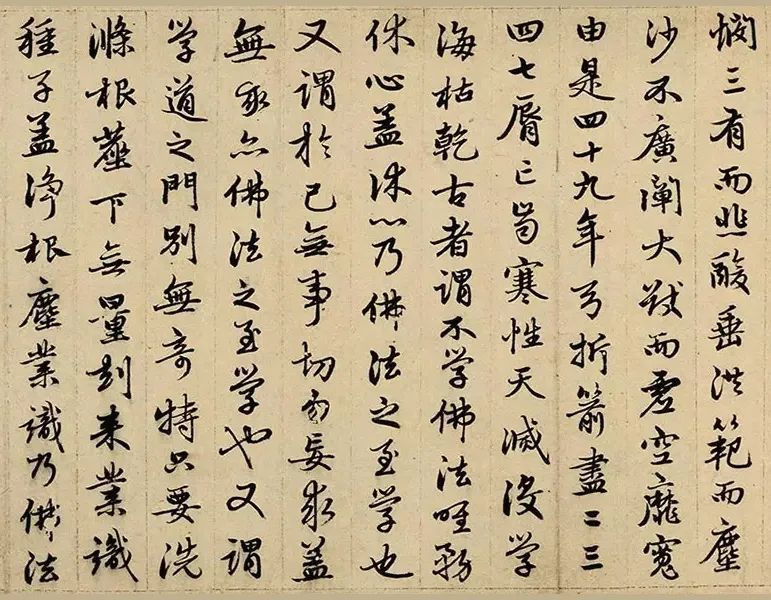 憫三有而悲酸垂洪範而塵
沙不廣闡大猷而虛空靡寬
由是四十九年弓折箭盡二三
四七脣亡齒寒性天滅沒学
海枯乾古者謂不学佛法唯務
休心盖休心乃佛法之至学也
又謂於己無事切勿妄求盖
無求亦佛法之至学也又謂
学道之門別無奇特只要洗
滌根塵下無量劫来業識
種子盖淨根塵業識乃佛法